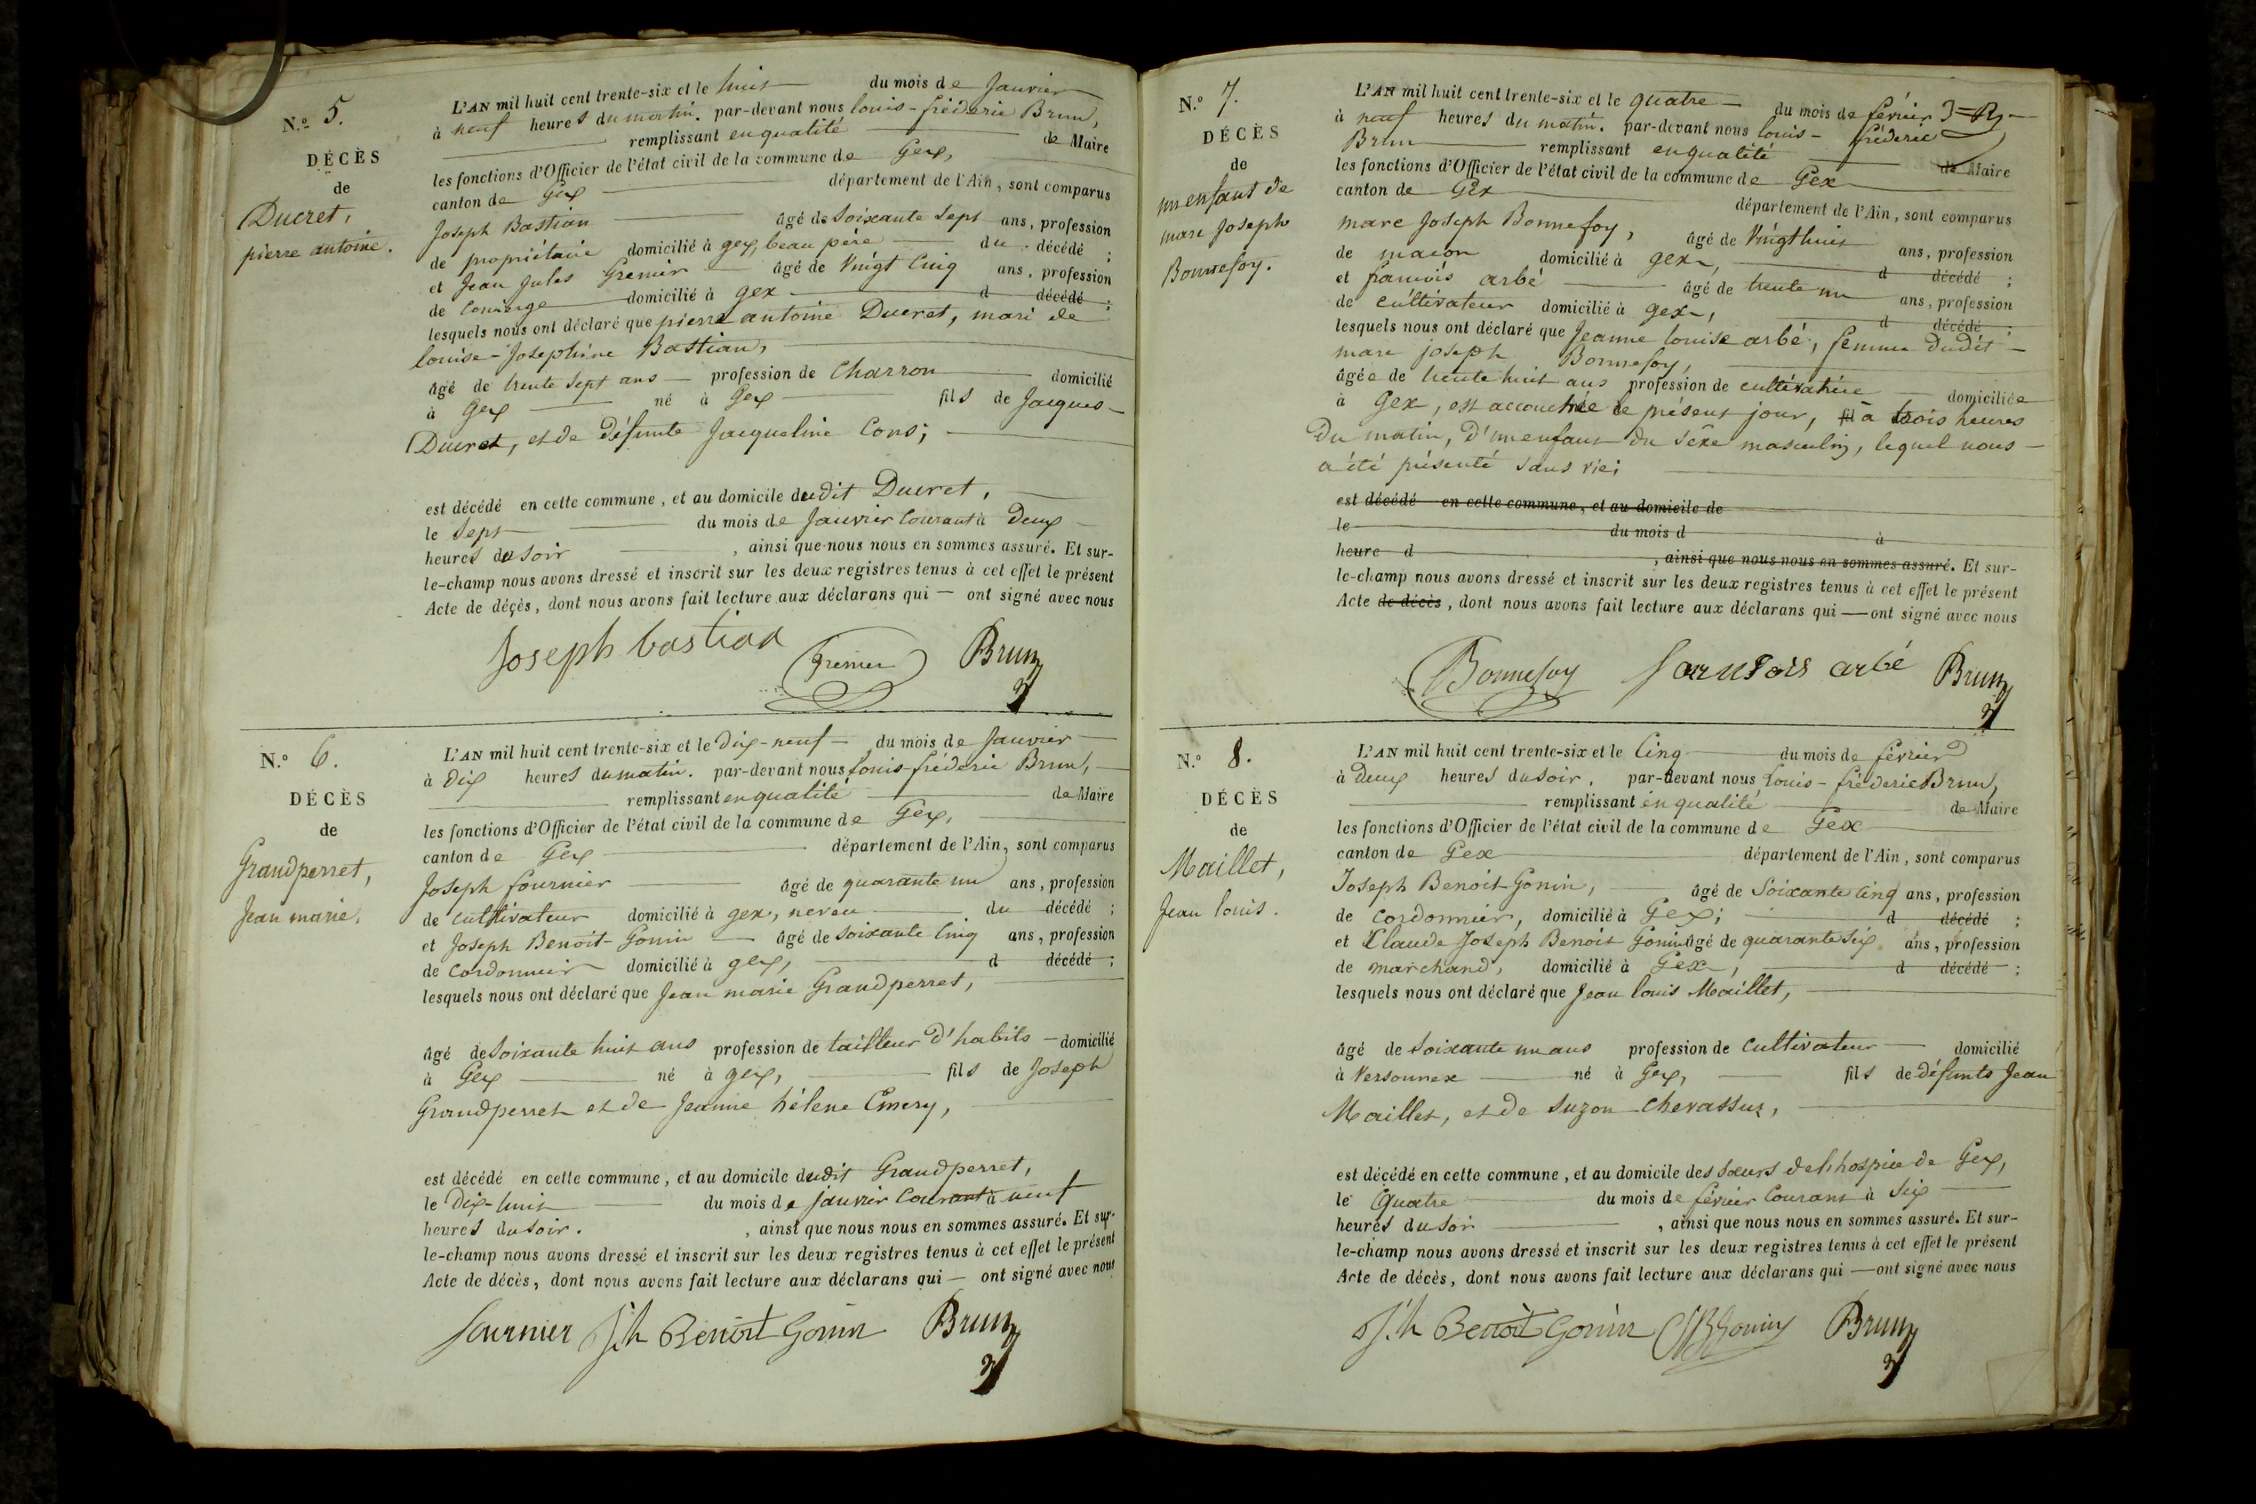 N.º 5.
DÉCÈS
de
Ducret,
pierre antoine.
L'AN mil huit cent trente-six et le huit du mois de Janvier
à neuf heures du matin. par-devant nous louis-fréderic Brun,
remplissant en qualité de Maire
les fonctions d'Officier de l'état civil de la commune de Gex,
canton de Gex département de l'Ain, sont comparus
Joseph Bastian âgé de soixante sept ans, profession
de propriétaire domicilié à gex, beau père du décédé ;
et Jean Jules Grenier âgé de vingt cinq ans, profession
de concierge domicilié à gex d décédé ;
lesquels nous ont déclaré que pierre antoine Ducret, mari de
louise-Josephine Bastian,
âgé de trente sept ans profession de Charron domicilié
à Gex né à Gex fils de Jacques
Ducret, et de défunte Jacqueline Cons;
est décédé en cette commune, et au domicile dudit Ducret,
le sept du mois de Janvier courant à Deux
heures du soir, ainsi que nous nous en sommes assuré. Et sur-
le-champ nous avons dressé et inscrit sur les deux registres tenus à cet effet le présent
Acte de décès, dont nous avons fait lecture aux déclarans qui — ont signé avec nous
Joseph bastian Grenier Brun
N.º 6.
DÉCÈS
de
Grandperret,
Jean marie.
L'AN mil huit cent trente-six et le Dix-neuf du mois de Janvier
à Dix heures du matin. par-devant nous louis-fréderic Brun,
remplissant en qualité de Maire
les fonctions d'Officier de l'état civil de la commune de Gex,
canton de Gex département de l'Ain, sont comparus
Joseph fournier âgé de quarante un ans, profession
de cultivateur domicilié à gex, neveu du décédé ;
et Joseph Benoit-Gonin âgé de soixante cinq ans, profession
de cordonnier domicilié à gex, d décédé ;
lesquels nous ont déclaré que Jean marie Grandperret,
âgé de soixante huit ans profession de tailleur d'habits domicilié
à Gex né à gex, fils de Joseph
Grandperret et de Jeanne hélene Emery,
est décédé en cette commune, et au domicile dudit Grandperret,
le Dix-huit du mois de janvier courant à neuf
heures du soir. , ainsi que nous nous en sommes assuré. Et sur-
le-champ nous avons dressé et inscrit sur les deux registres tenus à cet effet le présent
Acte de décès, dont nous avons fait lecture aux déclarans qui — ont signé avec nous
fournier Jh Benoit Gonin Brun
N.º 7.
DÉCÈS
de
un enfant de
marc Joseph
Bonnefoy.
L'AN mil huit cent trente-six et le quatre du mois de février
à neuf heures du matin. par-devant nous louis-fréderic
Brun remplissant en qualité de Maire
les fonctions d'Officier de l'état civil de la commune de Gex
canton de Gex département de l'Ain, sont comparus
marc Joseph Bonnefoy, âgé de vingt huit ans, profession
de macon domicilié à gex, d décédé ;
et francois arbé âgé de trente un ans, profession
de cultivateur domicilié à gex, d décédé ;
lesquels nous ont déclaré que Jeanne louise arbé, femme dudit
marc joseph Bonnefoy,
âgée de trente huit ans profession de cultivatrice domiciliée
à Gex, est accouchée le présent jour, à trois heures
Du matin, d'un enfant du sexe masculin, lequel nous
a été présenté sans vie;
est décédé en cette commune, et au domicile de
le du mois d à
heure d , ainsi que nous nous en sommes assuré. Et sur-
le-champ nous avons dressé et inscrit sur les deux registres tenus à cet effet le présent
Acte de décès, dont nous avons fait lecture aux déclarans qui — ont signé avec nous
Bonnefoy fransois arbé Brun
N.º 8.
DÉCÈS
de
Maillet,
Jean louis.
L'AN mil huit cent trente-six et le Cinq du mois de février
à Deux heures du soir. par-devant nous Louis-fréderic Brun,
remplissant en qualité de Maire
les fonctions d'Officier de l'état civil de la commune de Gex
canton de Gex département de l'Ain, sont comparus
Joseph Benoit-Gonin, âgé de soixante cinq ans, profession
de cordonnier, domicilié à Gex; d décédé ;
et Claude Joseph Benoit Gonin âgé de quarante six ans, profession
de marchand, domicilié à Gex, d décédé ;
lesquels nous ont déclaré que Jean louis Maillet,
âgé de soixante un ans profession de cultivateur domicilié
à Versonnex né à Gex, fils de défunts Jean
Maillet, et de suzon Chevassus,
est décédé en cette commune, et au domicile des sœurs de l'hospice de Gex,
le Quatre du mois de février Courant à six
heures du soir, ainsi que nous nous en sommes assuré. Et sur-
le-champ nous avons dressé et inscrit sur les deux registres tenus à cet effet le présent
Acte de décès, dont nous avons fait lecture aux déclarans qui — ont signé avec nous
Jh Benoit Gonin Brun